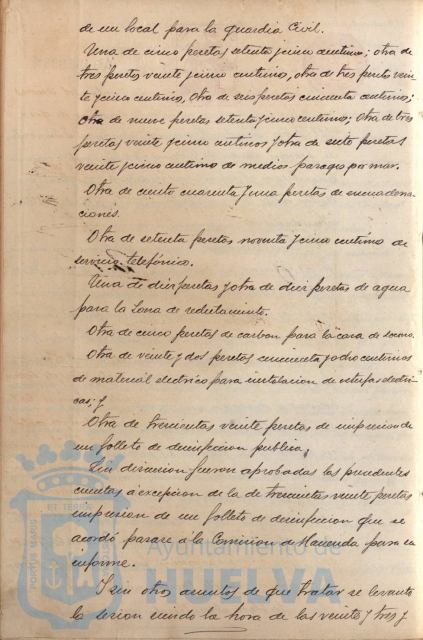 de un local para la guardia Civil.
Una de cinco pesetas setenta y cinco centimos; otra de
tres pesetas veinte y cinco centimos, otra de tres pesetas vein
te y cinco centimos, Otra de seis pesetas cincuenta centimos;
Otra de nueve pesetas setenta y cinco centimos; Otra de tres
pesetas veinte y cinco centimos y otra de siete pesetas
veinte y cinco centimos de medios pasages por mar.
Otra de ciento cuarenta y una pesetas de encuaderna-
ciones.
Otra de setenta pesetas noventa y cinco centimos de
servicio telefónico.
Una de diez pesetas y otra de diez pesetas de agua
para la Zona de reclutamiento.
Otra de cinco pesetas de carbon para la casa de socorro.
Otra de veinte y dos pesetas cincuenta y ocho centimos
de material electrico para instalacion de interfas electri-
cas; y
Otra de trescientas veinte pesetas de impresion de
un folleto de desinfeccion publica;
Sin discusion fueron aprobadas las precedentes
cuentas á excepcion de la de trescientas veinte pesetas
impresion de un folleto de desinfeccion que se
acordó pasase á la Comision de Hacienda para su
informe.
Y sin otros asuntos de que tratar se levantó
la sesion siendo la hora de las veinte y tres y
PORTUS MARIS ET TERRAE
Ayuntamiento de
HUELVA